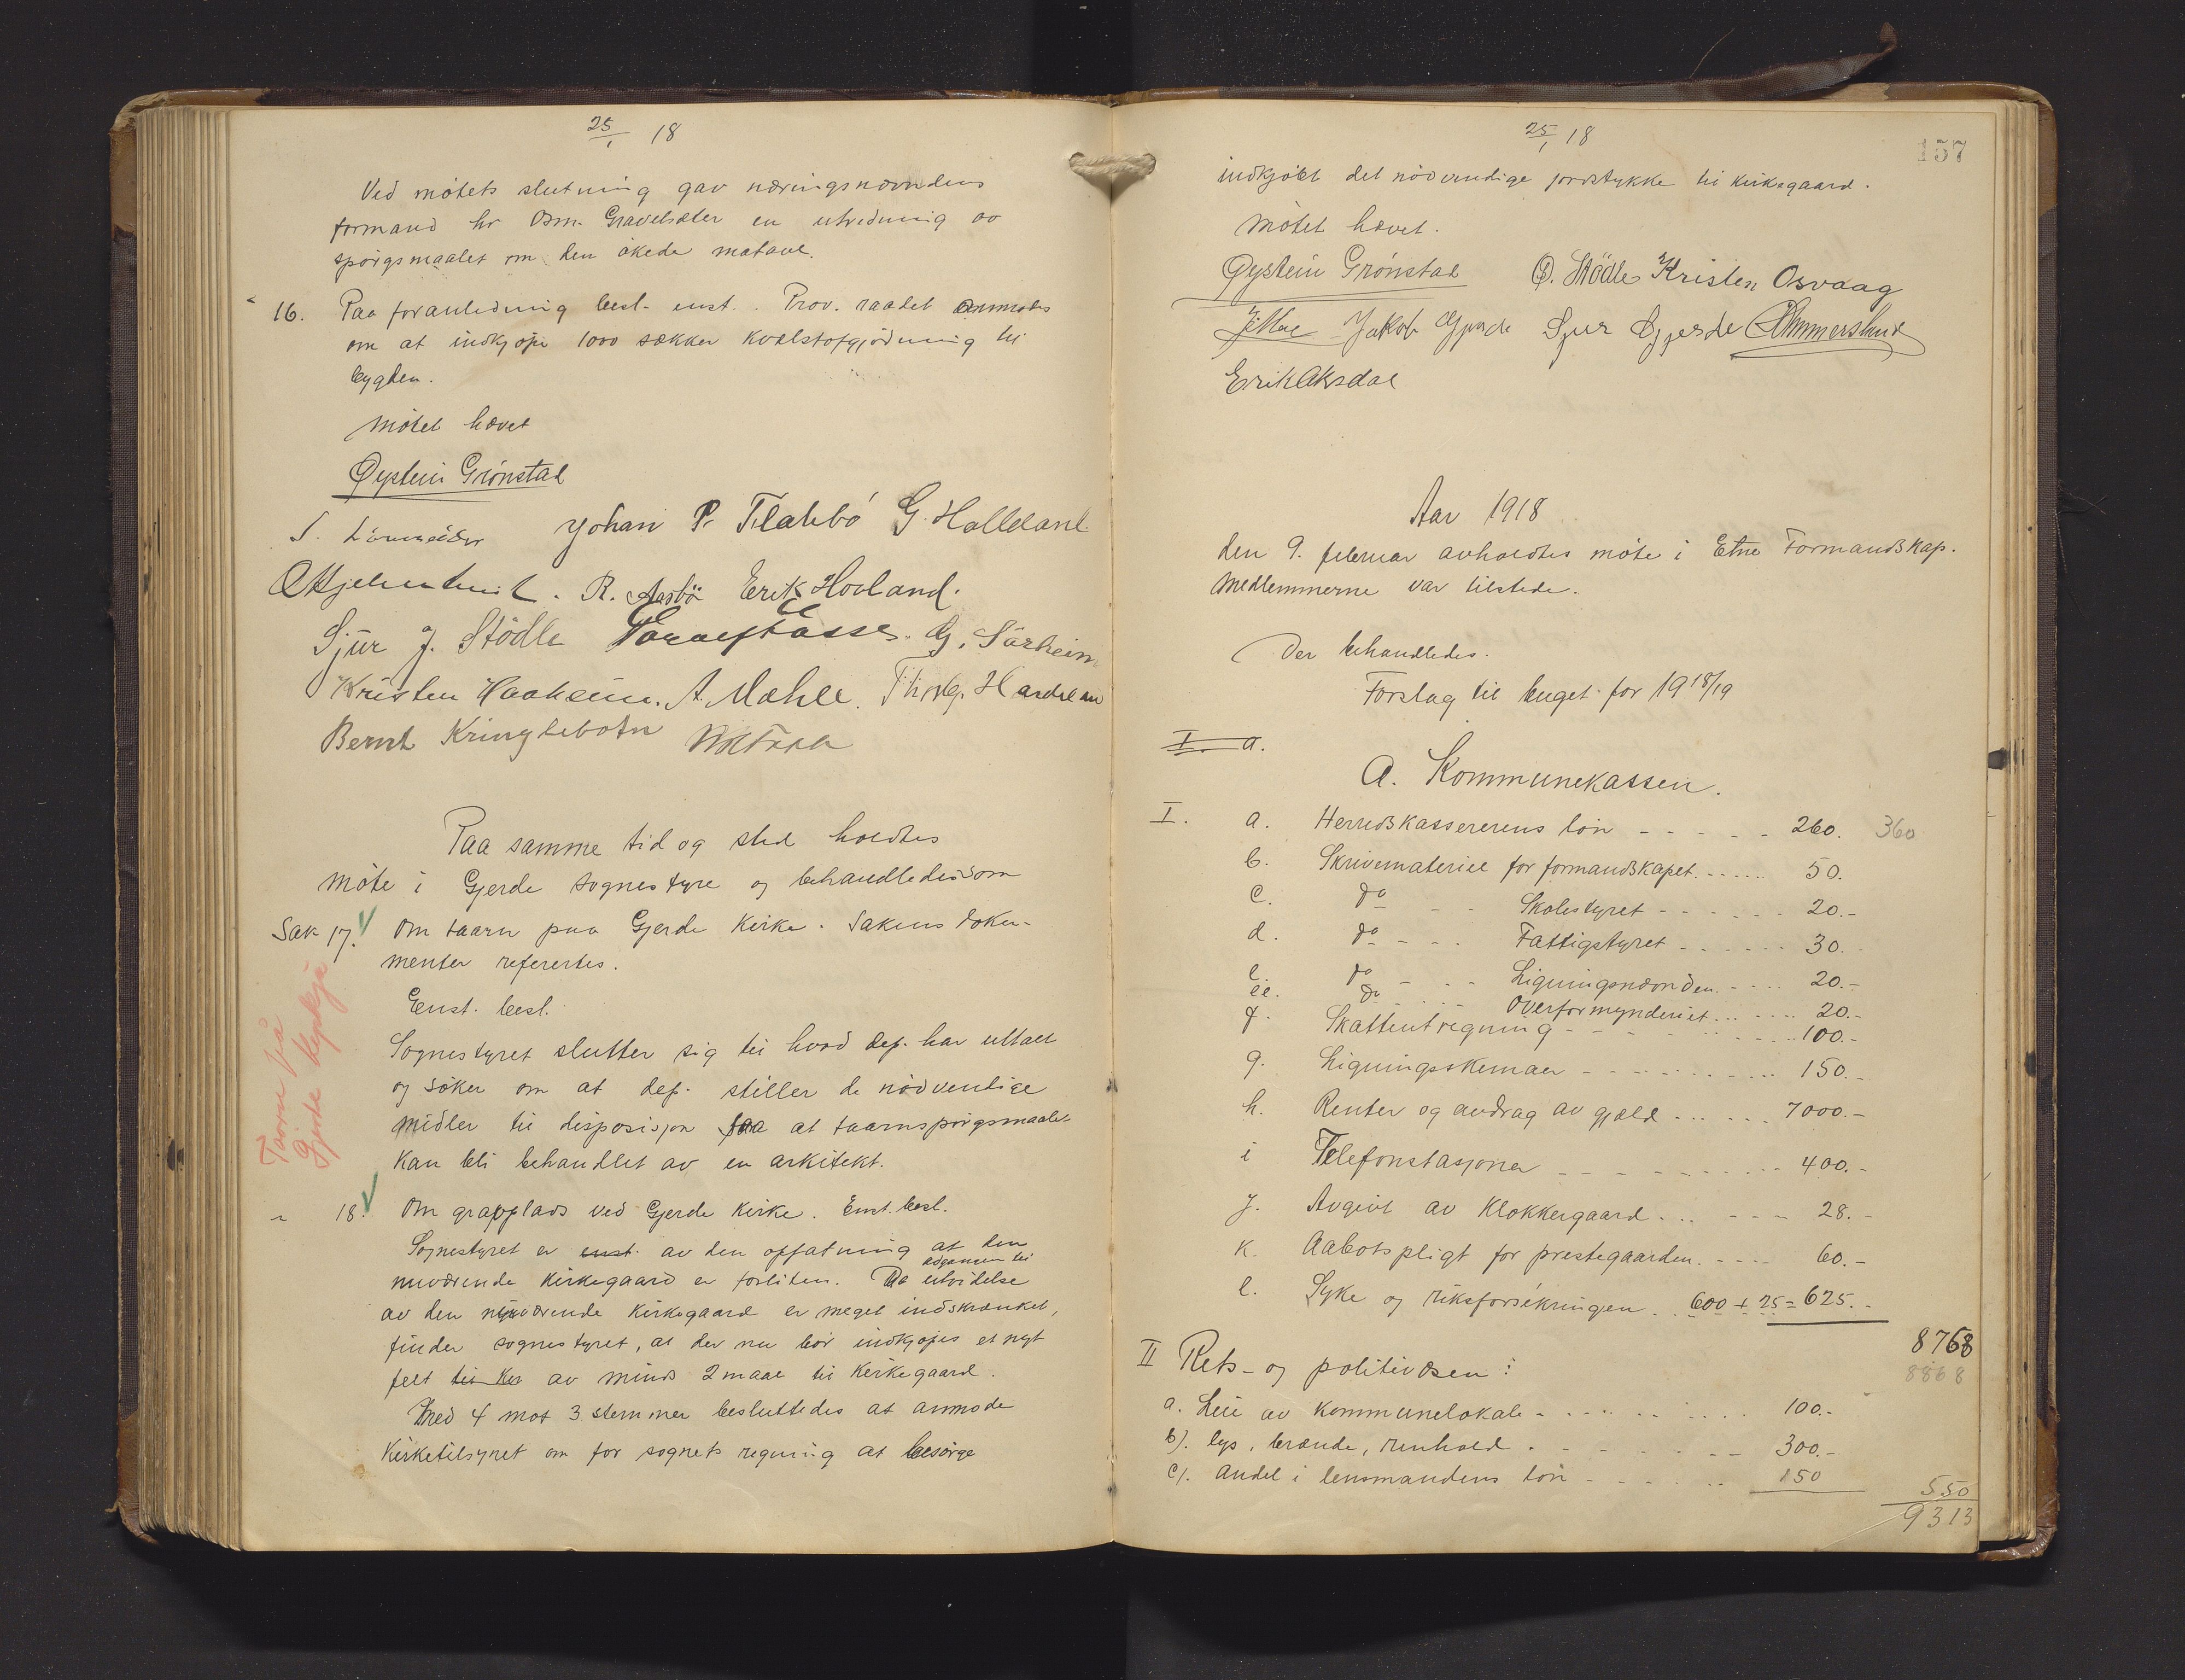 25/1 18
Ved møtets slutning gav næringsnævndens
formand hr Osm. Gravelsæter en utredning av
spørgsmaalet om den økede matavl.
16. Paa foranledning besl. enst. Prov. raadet anmodes
om at indkjøpe 1000 sækker kvælstofgjødning til
bygden.
Møtet hævet
Øystein Grønstad
Johan P. Flatebø G. Halleland
R. Aasbø Erik Hovland.
Sjur J. Stødle G. Særheim
Kristen Haaheim. A. Mæhle.
Bernt Kringlebotn
Paa samme tid og sted holdtes
møte i Gjerde sognestyre og behandledes som
Sak 17. Om taarn paa Gjerde kirke. Sakens doku-
menter referertes.
Enst. besl.
Taarn på
Gjerde kyrkja
Sognestyret slutter sig til hvad dep. har uttalt
og søker om at dep. stiller de nødvendige
midler til disposisjon saa at taarnspørgsmaalet
kan bli behandlet av en arkitekt.
" 18. Om gravplads ved Gjerde kirke. Enst. besl.
Sognestyret er enst. av den opfatning at den
nuværende kirkegaard er forliten. Da adgangen til utvidelse
av den nuværende kirkegaard er meget indskrænket,
finder sognestyret, at der nu bør indkjøpes et nyt
felt til Ki av minds 2 maal til kirkegaard.
Med 4 mot 3 stemmer besluttedes at anmode
Kirketilsynet om for sognets regning at besørge
25/1 18
157
indkjøbt det nødvendige jordstykke til kirkegaard.
Møtet hævet.
Øystein Grønstad O. Stødle Kristen Osvaag
Jakob Gjerde Sjur Gjerde
Erik Aksdal
Aar 1918
den 9. februar avholdtes møte i Etne Formandskap.
Medlemmerne var tilstede.
Der behandledes.
Forslag til buget for 1918/19
I. a.
A. Kommunekassen.
I. a. Herredskassererens løn - - - - - 260. 360
b. Skrivemateriel for formandskapet. - - - - 50.
c. do - - Skolestyret - - - - - - 20.-
d. do - - - Fattigstyret - - - - - - 30.-
e. do - - - Ligningsnævnden - - - - 20.-
ee. do - - - Overformynderiet - - - - 20.-
f. Skatteutregning - - - - - - - - 100.-
g. Ligningsskemaer - - - - - - - - 150.-
h. Renter og avdrag av gjæld - - - - - 7000.-
i Telefonstasjoner - - - - - - - - 400.-
j. Avgivt av Klokkergaard - - - - - 28.-
k. Aabotspligt for prestegaarden. - - - - 60.-
l. Syke og riksforsikringen. 600 + 25 = 625.-
8768
8868
II Rets- og politivæsen:
a. Leie av kommunelokale - - - - - - - 100.-
b). lys, brænde, renhold. - - - - - - - 300.-
c). Andel i lensmandens løn - - - - - - 150
550
9313